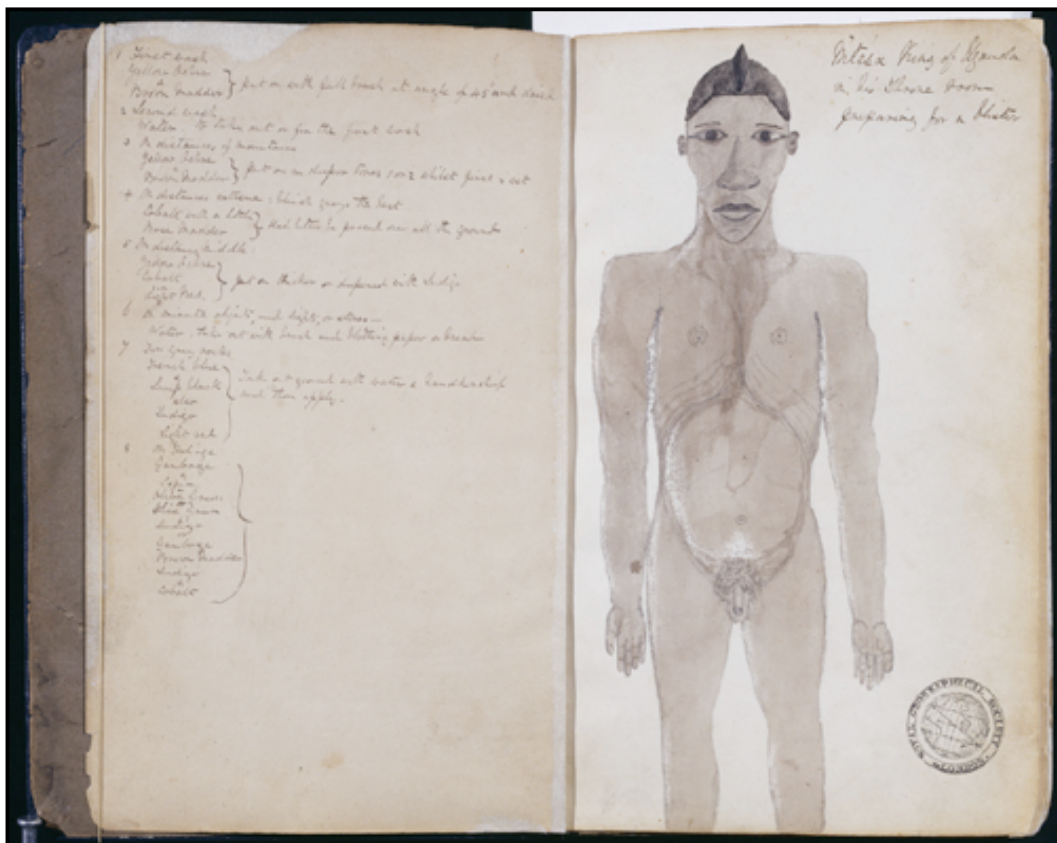 1 First wash
Yellow Ochre
Brown Madder } put on with full brush at angle of 45 and
2 Second wash
Water. To take out
the first wash
3 On distances of mountains
Yellow Ochre
Brown Madder } put on in deeper tones 1 or 2 whilst first is set
4 On distances extreme: which grays the last
Cobalt with a little
Rose Madder } all the ground
5 On distance middle
Yellow Ochre
Cobalt
Light Red } put on thicker or deepened with Indigo
6 On minute objects, and lights, or
Water. take out with brush and blotting paper or
7 For gray rocks
French blue
Lamp black
also
Indigo
Light red
} Take out ground with water & handkerchief
and then apply.
8 On foliage
Gamboge
Sepia
Brown
Indigo
Gamboge
Brown Madder
Indigo
Cobalt
Mtesa King of Uganda
in his Throne room
preparing for a
ROYAL GEOGRAPHICAL SOCIETY
LONDON